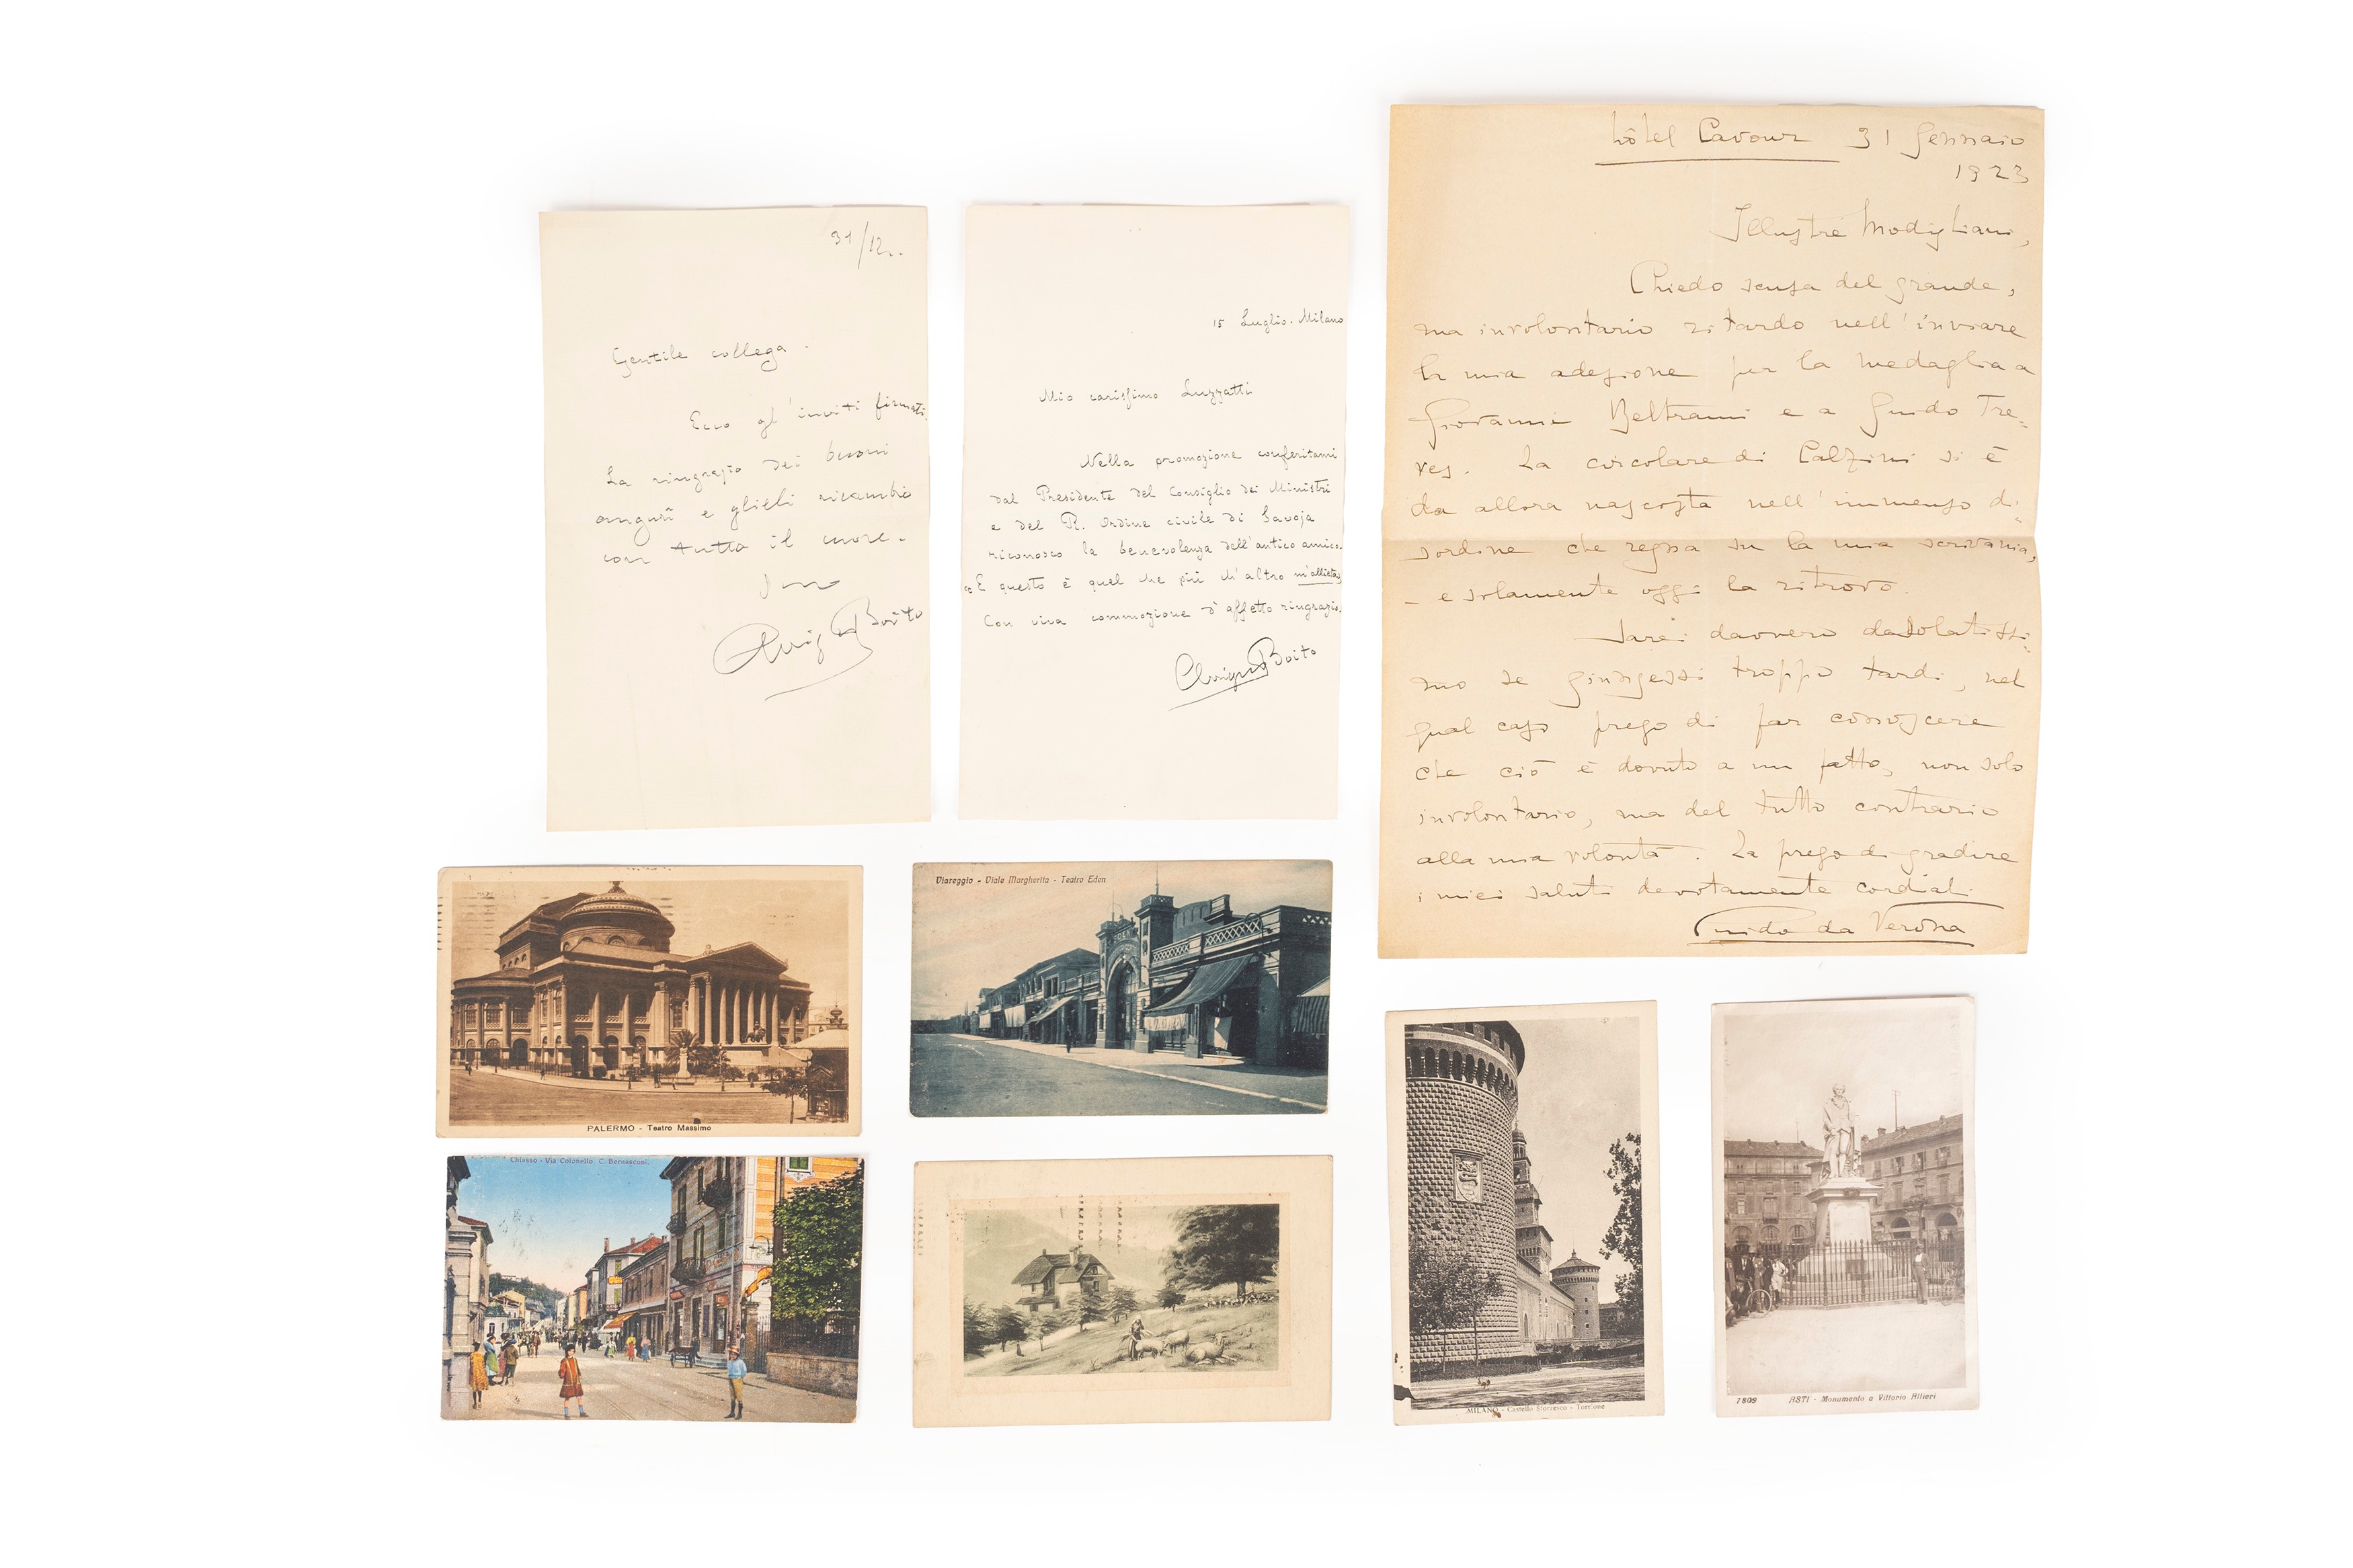 31/12..
Gentile collega.
Ecco gl'inviti firmati.
La ringrazio dei buoni
augurî e glieli ricambio
con tutto il cuore.
Suo
Arrigo Boito
15 Luglio. Milano
Mio carissimo Luzzatti
Nella promozione conferitami
dal Presidente del Consiglio dei Ministri
e del R. Ordine civile di Savoja
riconosco la benevolenza dell'antico amico.
E questo è quel che più d'altro m'allieta.
Con viva commozione d'affetto ringrazio.
Arrigo Boito
hôtel Cavour 31 Gennaio
1923
Illustre Modigliani,
Chiedo scusa del grande,
ma involontario ritardo nell'inviare
la mia adesione per la medaglia a
Giovanni Beltrami e a Guido Tre-
ves. La circolare di Calzini si è
da allora nascosta nell'immenso di-
sordine che regna su la mia scrivania,
– e solamente oggi la ritrovo.
Sarei davvero desolatissi-
mo se giungessi troppo tardi, nel
qual caso prego di far conoscere
che ciò è dovuto a un fatto, non solo
involontario, ma del tutto contrario
alla mia volontà. La prego di gradire
i miei saluti devotamente cordiali
Guido da Verona
PALERMO - Teatro Massimo
Viareggio - Viale Margherita - Teatro Eden
EDEN
Chiasso - Via Colonello C. Bernasconi.
MILANO - Castello Sforzesco - Torrione
7809 ASTI - Monumento a Vittorio Alfieri